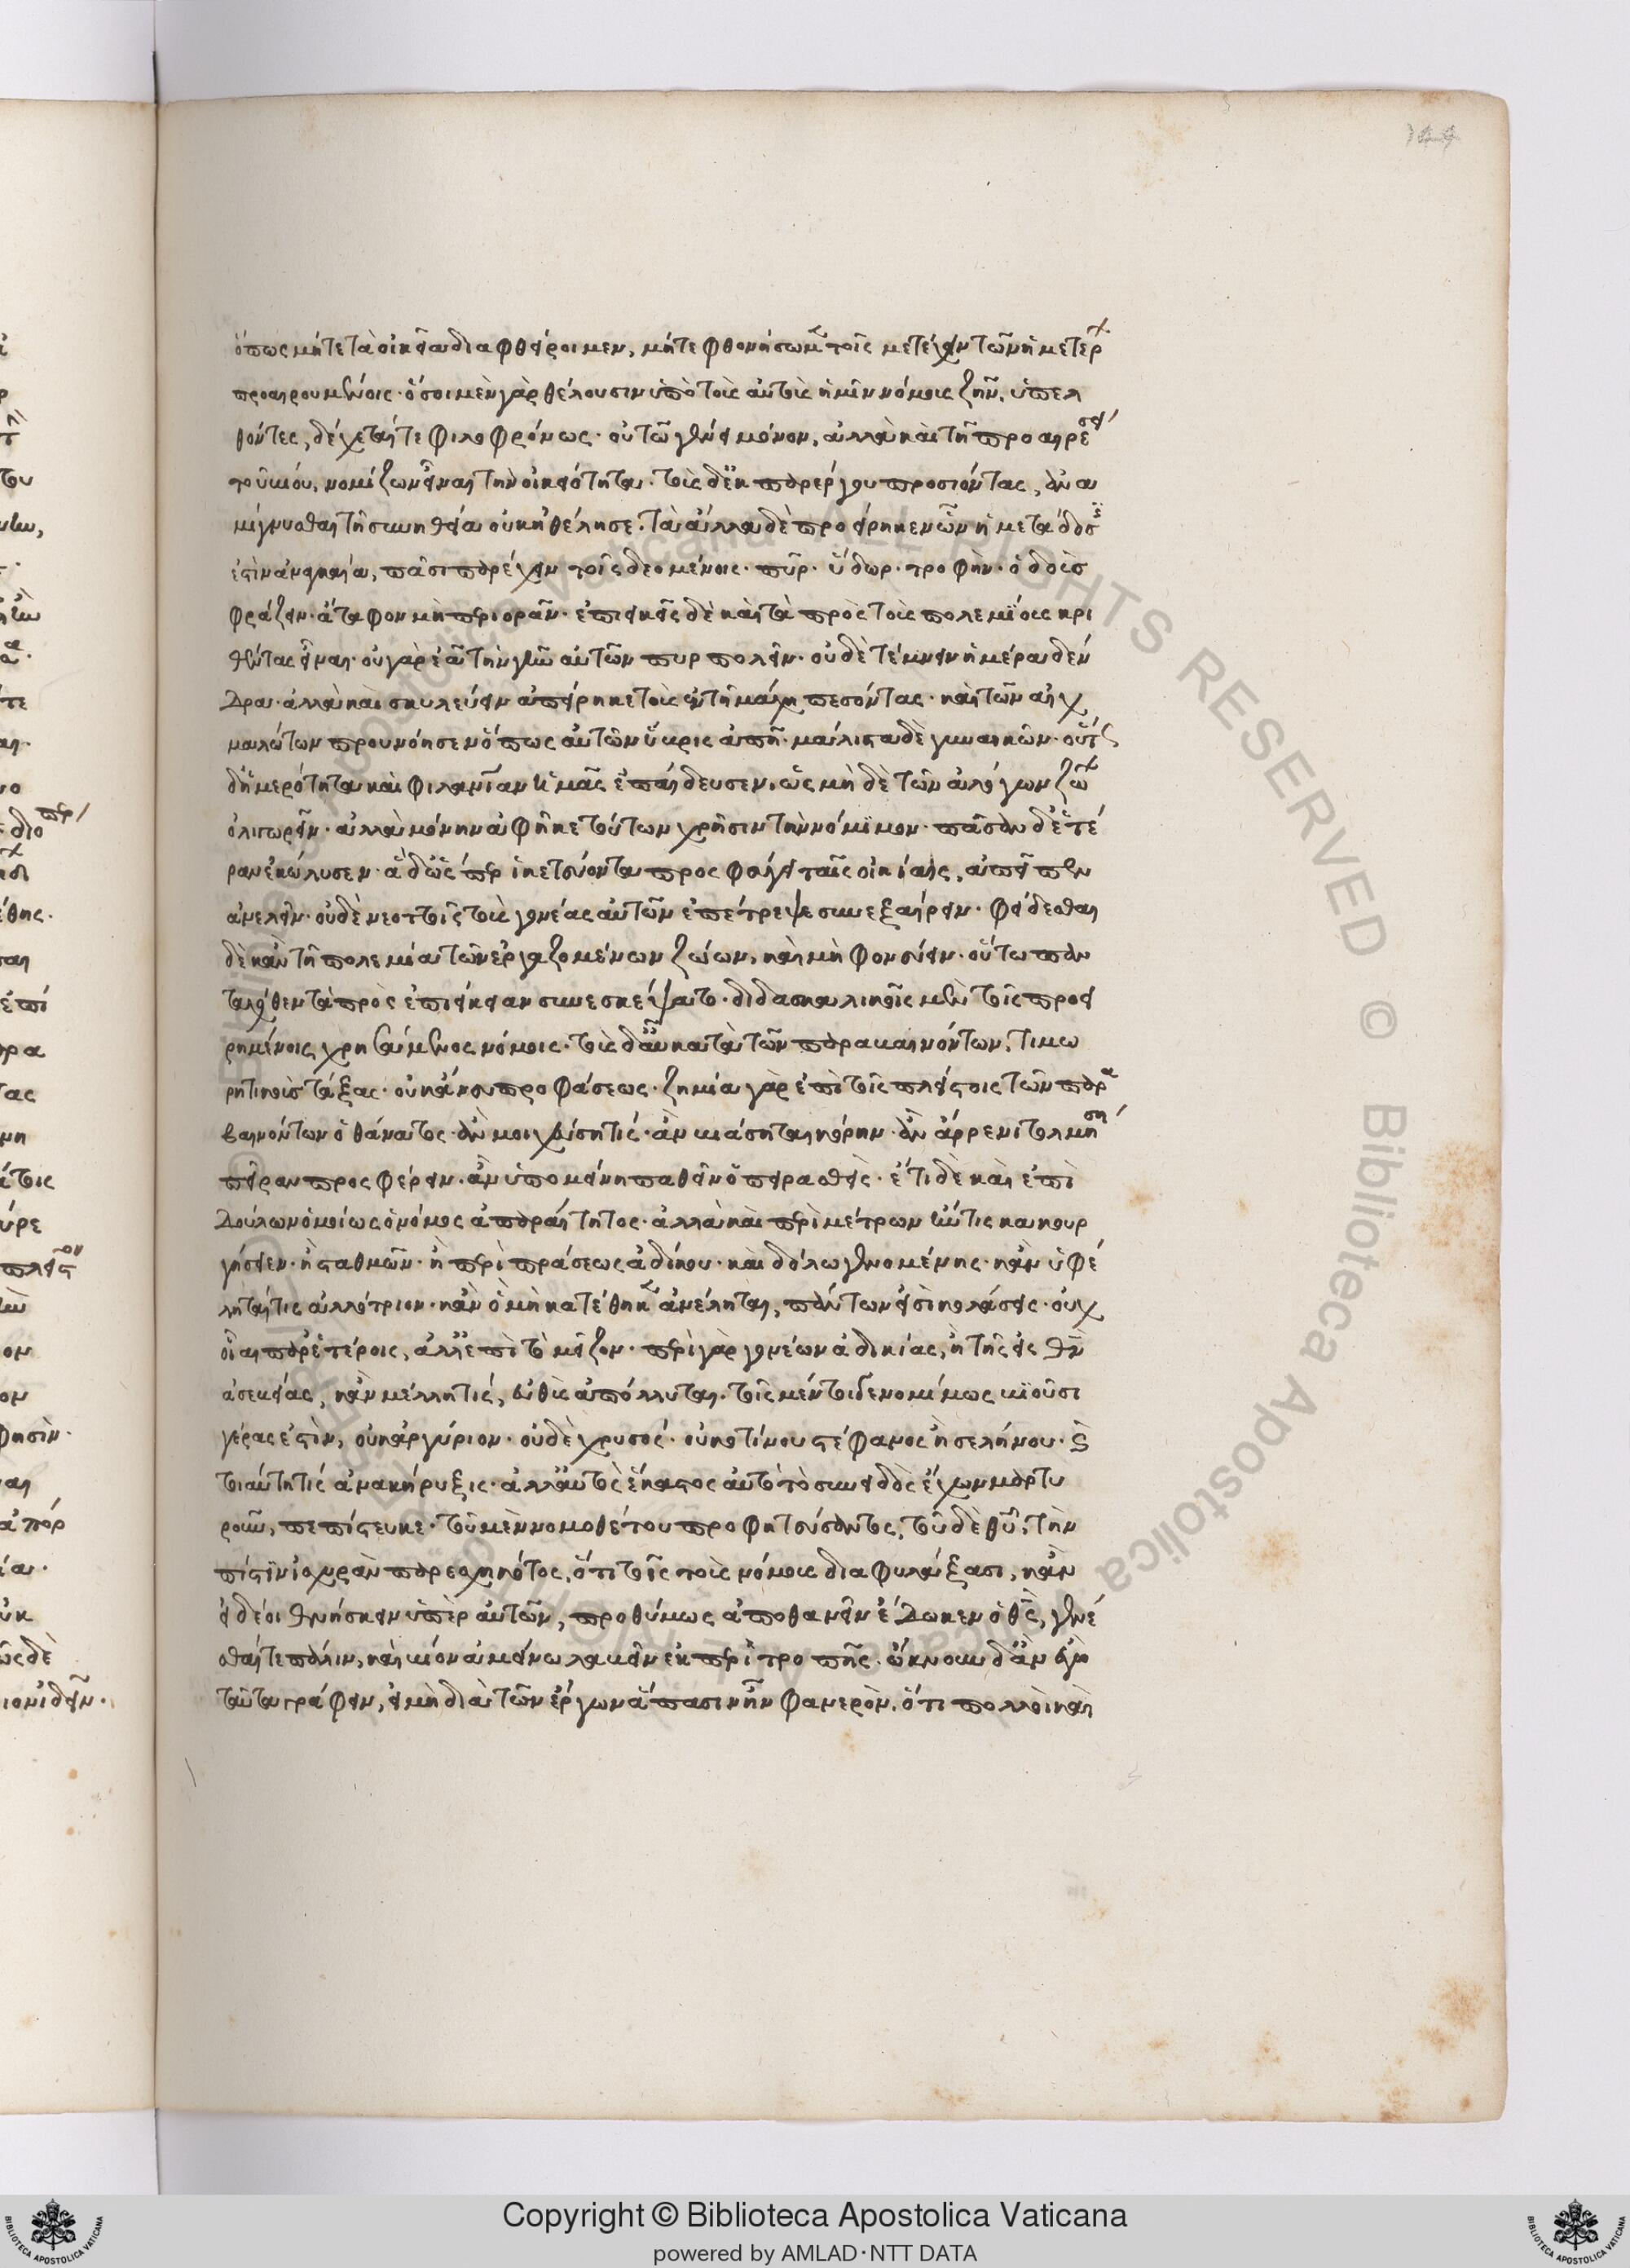 ὅπως μήτε τὰ οἰκεῖα διαφθείροιμεν, μήτε φθονήσωμεν τοῖς μετέχειν τῶν ἡμετέρων
προαιρουμένοις· ὅσοι μὲν γὰρ θέλουσιν ὑπὸ τοὺς αὐτοὺς ἡμῖν νόμους ζῆν, ὑπελ
θόντες, δέχεταί τε φιλοφρόνως· οὐ τῷ γένει μόνον, ἀλλὰ καὶ τῇ προαιρέσει
τοῦ βίου, νομίζων εἶναι τὴν οἰκειότητα· τοὺς δ' ἐκ παρέργου προσιόντας, ἀνα
μίγνυσθαι τῇ συνηθεία οὐκ ἠθέλησε. τὰ ἄλλα δὲ προείρηκεν ὧν ἡ μετάδοσις
ἐστὶν ἀναγκαία, πᾶσι παρέχειν τοῖς δεομένοις· πῦρ· ὕδωρ· τροφὴν· ὁδοὺς
φράζειν· ἄταφον μὴ περιορᾶν· ἐπιεικεῖς δὲ καὶ τὰ πρὸς τοὺς πολεμίους κρι
θέντας εἶναι· οὐ γὰρ ἐᾷ τὴν γῆν αὐτῶν πυρπολεῖν· οὐδὲ τέμνειν ἥμερα δέν
δρα· ἀλλὰ καὶ σκυλεύειν ἀπείρηκε τοὺς ἐν τῇ μάχῃ πεσόντας· καὶ τῶν αἰχ
μαλώτων προυνόησεν ὅπως αὐτῶν ὕβρις ἀπῇ· μάλιστα δὲ γυναικῶν· οὕτως
δ' ἡμερότητα καὶ φιλανθρωπίαν ἡμᾶς ἐπαίδευσεν, ὡς μηδὲ τῶν ἀλόγων ζώων
ὀλιγωρεῖν· ἀλλὰ μόνην ἀφῆκε τούτων χρῆσιν τὴν νόμιμον· πᾶσαν δ' ἑτέ
ραν ἐκώλυσεν· ἃ δ' ὥσπερ ἱκετεύοντα προσφεύγει ταῖς οἰκίαις, ἀπεῖπεν
ἀνελεῖν· οὐδὲ νεοττοῖς τοὺς γονέας αὐτῶν ἐπέτρεψε συνεξαίρειν· φείδεσθαι
δὲ κἀν τῇ πολεμία τῶν ἐργαζομένων ζώων, καὶ μὴ φονεύειν· οὕτω παν
ταχόθεν τὰ πρὸς ἐπιείκειαν συνεσκέψατο· διδασκαλικοῖς μὲν τοῖς προει
ρημένοις χρησάμενος νόμοις· τοὺς δ' αὖ κατὰ τῶν παραβαινόντων, τιμω
ρητικοὺς τάξας· οὐκ ἄνευ προφάσεως· ζημία γὰρ ἐπὶ τοῖς πλείστοις τῶν παρα
βαινόντων ὁ θάνατος· ἂν μοιχεύσῃ τις· ἂν βιάσηται κόρην· ἂν ἄρρενι τολμήσῃ
πεῖραν προσφέρειν· ἂν ὑπομείνῃ παθεῖν ὁ πειρασθείς· ἔτι δὲ καὶ ἐπὶ
δούλων ὁμοίως ὁ νόμος ἀπαραίτητος· ἀλλὰ καὶ περὶ μέτρων ἤν τις κακουρ
γήσειεν· ἢ σταθμῶν· ἢ περὶ πράσεως ἀδίκου· καὶ δόλω γινομένης· κἂν ὑφέ
ληται τις ἀλλότριον· κἂν ὃ μὴ κατέθηκεν ἀνέληται, πάντων εἰσὶ κολάσεις· οὐχ
οἷαι παρ' ἑτέροις, ἀλλ' ἐπὶ τὸ μεῖζον· περὶ γὰρ γονέων ἀδικίας, ἢ τῆς εἰς θεὸν
ἀσεβείας, κἂν μέλλῃ τις, εὐθὺς ἀπόλλυται. τοῖς μέντοι γε νομίμως βιοῦσι
γέρας ἐστὶν, οὐκ ἀργύριον· οὐδὲ χρυσός· οὐ κοτίνου στέφανος ἢ σελήνου· καὶ
τοιαύτη τις ἀνακήρυξις· ἀλλ' αὐτὸς ἕκαστος αὑτῷ τὸ συνειδὸς ἔχων μαρτυ
ροῦν, πεπίστευκε· τοῦ μὲν νομοθέτου προφητεύσαντος, τοῦ δὲ θεοῦ, τὴν
πίστιν ἰσχυρὰν παρεσχηκότος, ὅτι τοῖς τοὺς νόμους διαφυλάξασι, κἂν
εἰ δέοι θνήσκειν ὑπὲρ αὐτῶν, προθύμως ἀποθανεῖν ἔδωκεν ὁ θεὸς, γενέ
σθαι τε πάλιν, καὶ βίον ἀμείνω λαβεῖν ἐκ περιτροπῆς· ὤκνουν δ' ἂν ἐγὼ
ταῦτα γράφειν, εἰ μὴ διὰ τῶν ἔργων ἅπασιν ἦν φανερὸν, ὅτι πολλοὶ καὶ
Copyright © Biblioteca Apostolica Vaticana
powered by AMLAD·NTT DATA